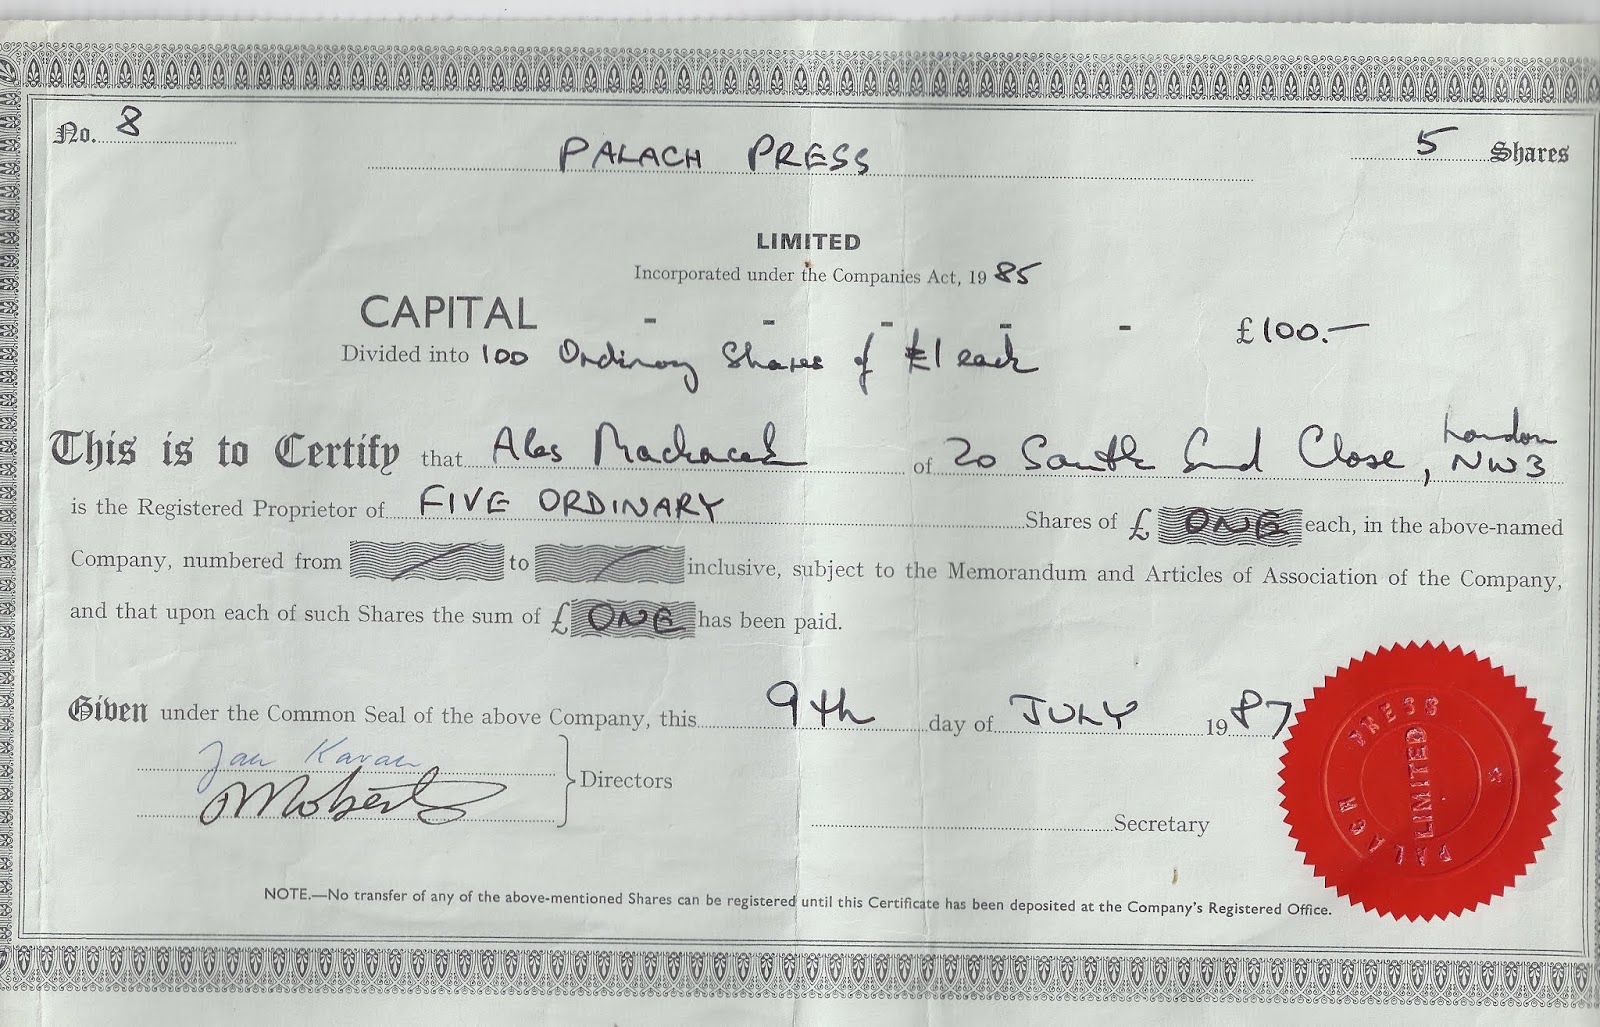 No. 8
PALACH PRESS
5 Shares
LIMITED
Incorporated under the Companies Act, 1985
CAPITAL - - - - - £100.—
Divided into 100 Ordinary Shares of £1 each
This is to Certify that Ales Machacek of 20 South End Close, London NW3
is the Registered Proprietor of FIVE ORDINARY Shares of £ ONE each, in the above-named
Company, numbered from / to / inclusive, subject to the Memorandum and Articles of Association of the Company,
and that upon each of such Shares the sum of £ ONE has been paid.
Given under the Common Seal of the above Company, this 9th day of JULY 1987
Jan Kavan
Roberts
Directors
Secretary
PALACH PRESS
LIMITED
NOTE.—No transfer of any of the above-mentioned Shares can be registered until this Certificate has been deposited at the Company's Registered Office.